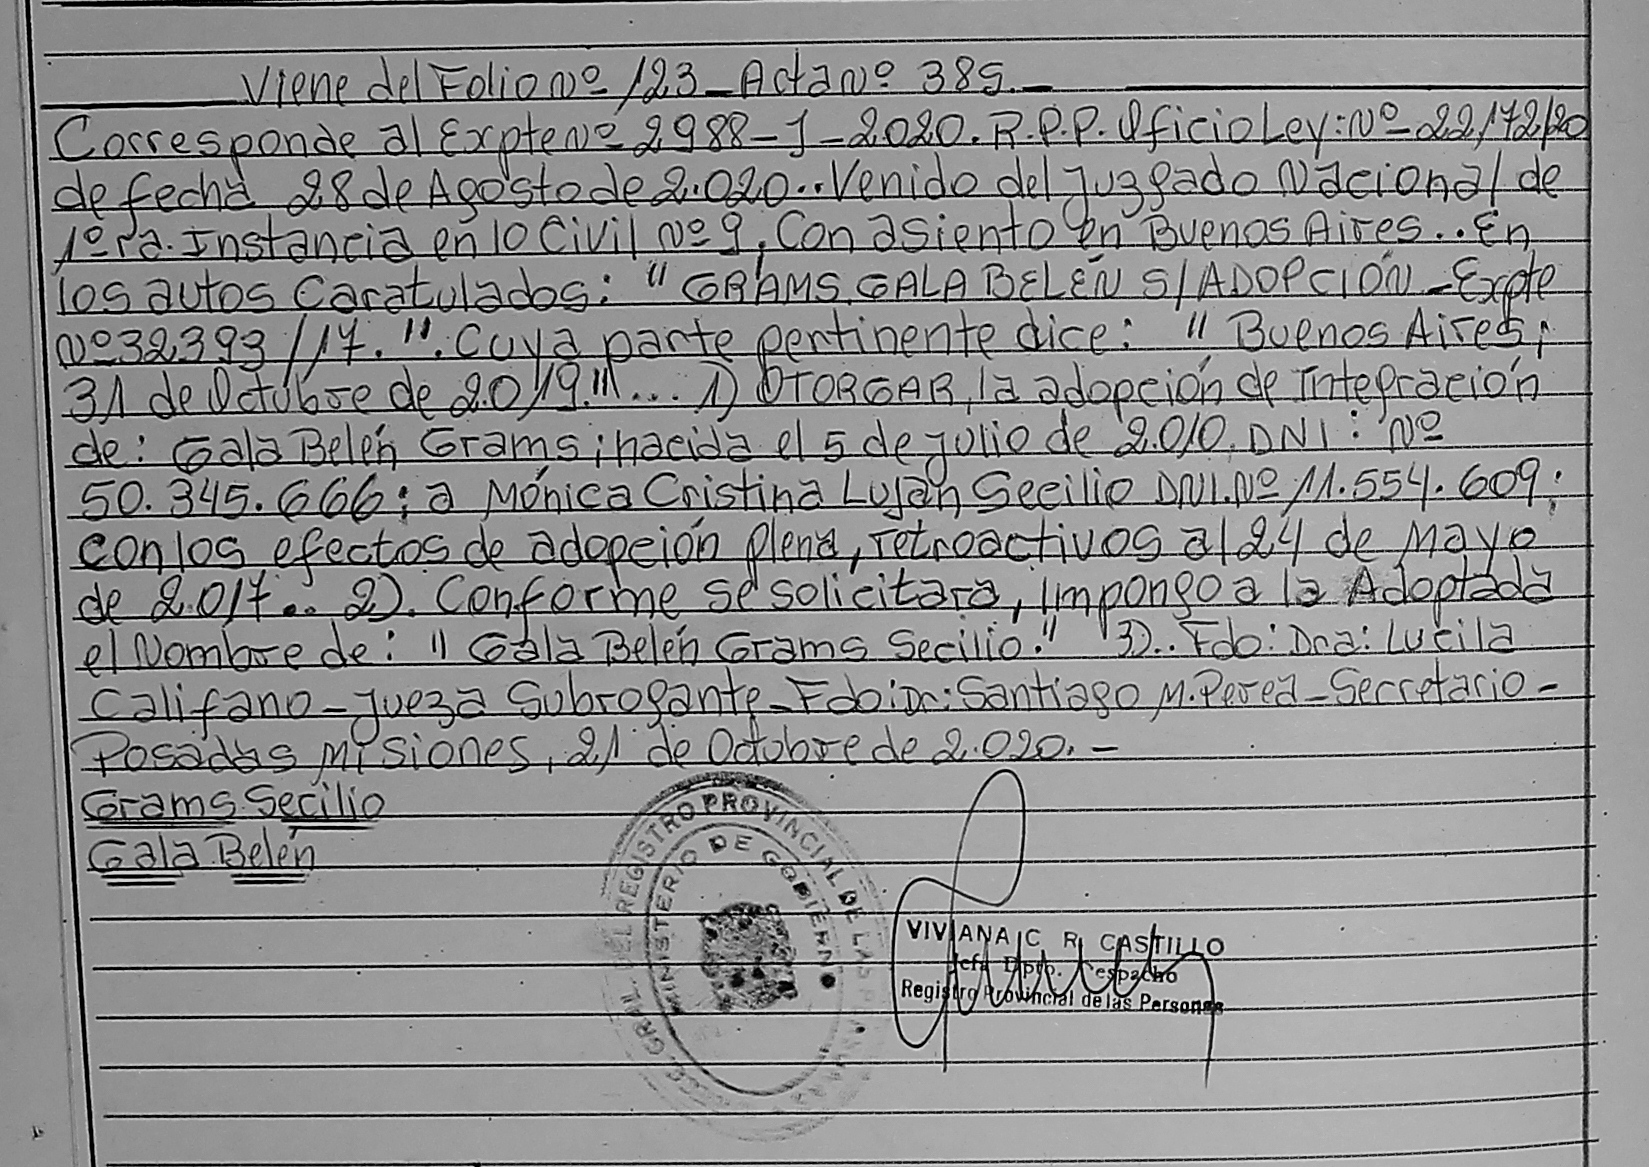 Viene del Folio Nº 123 - Acta Nº 385.-
Corresponde al Expte Nº 2988-J-2020. R.P.P. Oficio Ley: Nº 22/172/20
de fecha 28 de Agosto de 2.020.. Venido del Juzgado Nacional de
1º ra. Instancia en lo Civil Nº 9, Con asiento en Buenos Aires.. En
los autos Caratulados: "GRAMS, GALA BELÉN S/ADOPCIÓN - Expte
Nº 32393/17.". Cuya parte pertinente dice: "Buenos Aires,
31 de Octubre de 2.019."... 1) OTORGAR, la adopción de Integración
de: Gala Belén Grams; nacida el 5 de julio de 2.010. DNI: Nº
50.345.666; a Mónica Cristina Luján Secilio DNI. Nº 11.554.609;
con los efectos de adopción plena, retroactivos al 24 de Mayo
de 2.017... 2). Conforme se solicitara, Impongo a la Adoptada
el Nombre de: "Gala Belén Grams Secilio." 3).. Fdo: Dra: Lucila
Califano - Jueza Subrogante - Fdo: Dr: Santiago M. Pered - Secretario -
Posadas Misiones, 21 de Octubre de 2.020.-
Grams Secilio
Gala Belén
REGISTRO PROVINCIAL DE LAS
MINISTERIO DE GOBIERNO
VIVIANA C. R. CASTILLO
Jefa Dpto. Despacho
Registro Provincial de las Personas